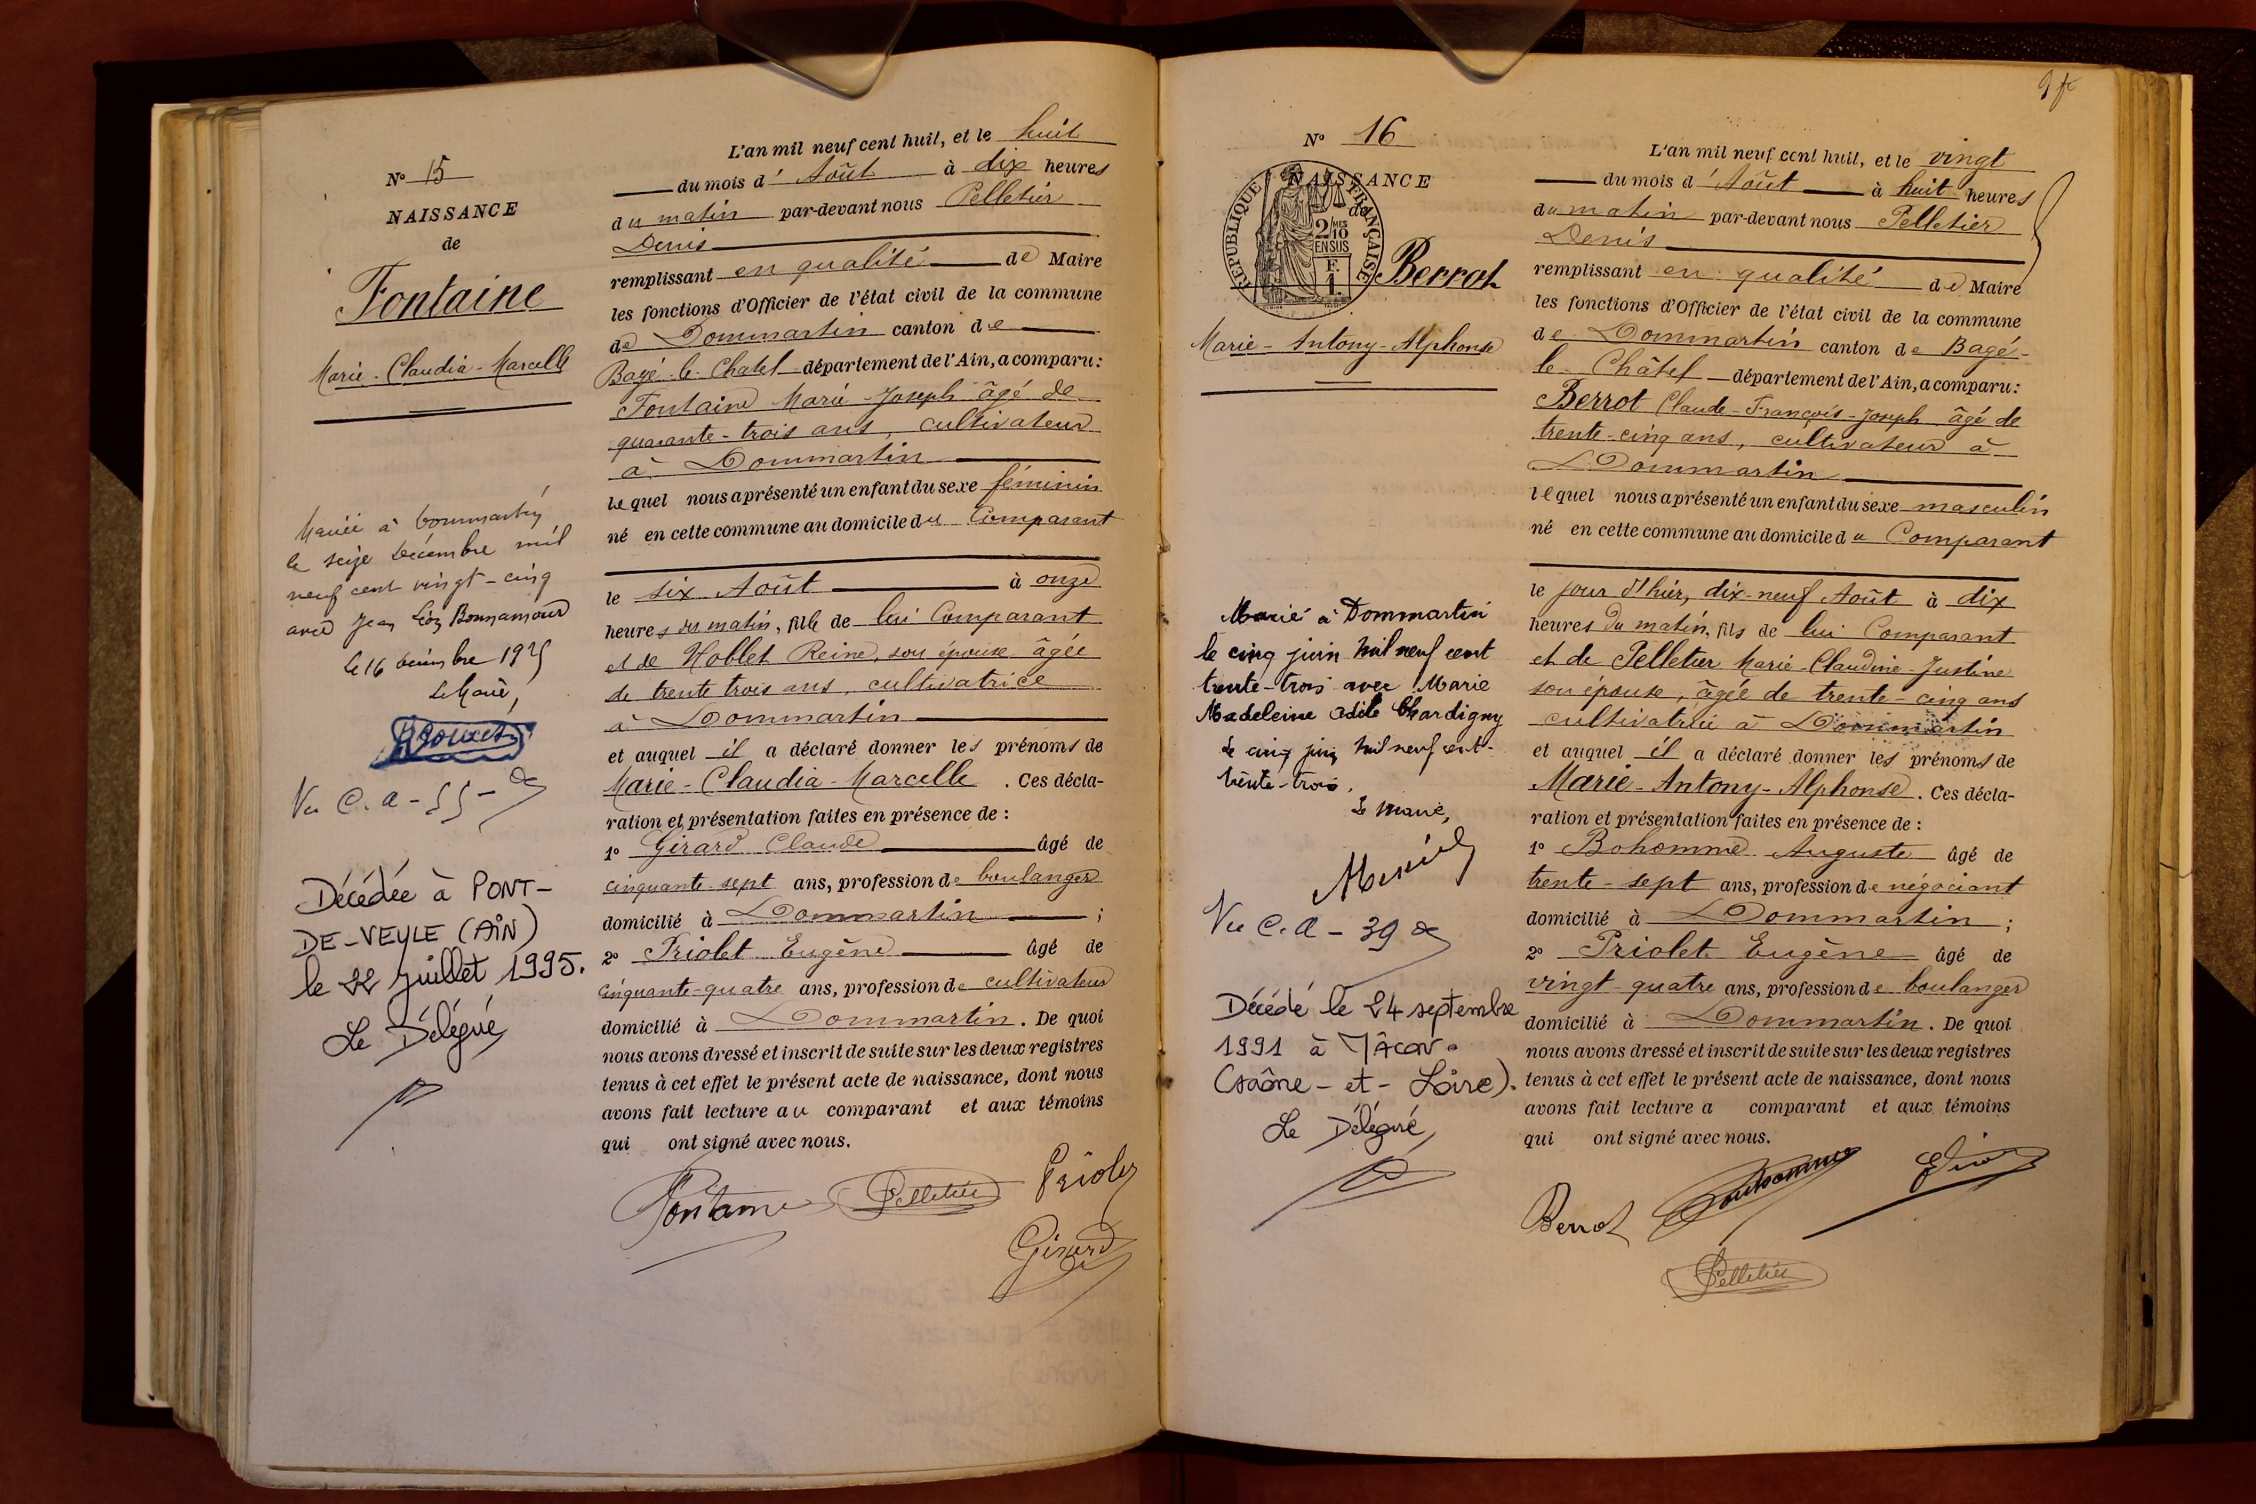 N° 15
NAISSANCE
de
Fontaine
Marie-Claudia-Marcelle
Mariée à Dommartin
le seize décembre mil
neuf cent vingt-cinq
avec Jean Léon Bonnamour
le 16 décembre 1925
Le Maire,
Vu C. a - 55 -
Décédée à PONT-
DE-VEYLE (AiN)
le 22 juillet 1995.
Le Délégué
L'an mil neuf cent huit, et le huit
du mois d' Août à dix heures
du matin par-devant nous Pelletier
Denis
remplissant en qualité de Maire
les fonctions d'Officier de l'état civil de la commune
de Dommartin canton de
Bagé-le-Chatel département de l'Ain, a comparu :
Fontaine Marie-Joseph âgé de
quarante-trois ans, cultivateur
à Dommartin
lequel nous a présenté un enfant du sexe féminin
né en cette commune au domicile du Comparant
le six Août à onze
heures du matin, fille de lui Comparant
et de Noblet Reine, son épouse âgée
de trente trois ans, cultivatrice
à Dommartin
et auquel il a déclaré donner les prénoms de
Marie-Claudia-Marcelle. Ces décla-
ration et présentation faites en présence de :
1° Girard Claude âgé de
cinquante-sept ans, profession de boulanger
domicilié à Dommartin ;
2° Priolet Eugène âgé de
cinquante-quatre ans, profession de cultivateur
domicilié à Dommartin. De quoi
nous avons dressé et inscrit de suite sur les deux registres
tenus à cet effet le présent acte de naissance, dont nous
avons fait lecture au comparant et aux témoins
qui ont signé avec nous.
Fontaine Pelletier Priolet
Girard
N° 16
NAISSANCE
de
RÉPUBLIQUE FRANÇAISE
2/10 MES
EN SUS
F.
1.
Berrot
Marie-Antony-Alphonse
Marié à Dommartin
le cinq juin mil neuf cent
trente-trois avec Marie
Madeleine Odile Chardigny
Le cinq juin mil neuf cent-
trente-trois.
Le Maire,
Vu C. a - 39
Décédé le 24 septembre
1991 à MÂCON
(Saône-et-Loire).
Le Délégué,
L'an mil neuf cent huit, et le vingt
du mois d' Août à huit heures
du matin par-devant nous Pelletier
Denis
remplissant en qualité de Maire
les fonctions d'Officier de l'état civil de la commune
de Dommartin canton de Bagé-
le-Châtel département de l'Ain, a comparu :
Berrot Claude-François-Joseph âgé de
trente-cinq ans, cultivateur à
Dommartin
lequel nous a présenté un enfant du sexe masculin
né en cette commune au domicile du Comparant
le jour d'hier, dix-neuf Août à dix
heures du matin, fils de lui Comparant
et de Pelletier Marie-Claudine-Justine
son épouse, âgée de trente-cinq ans
cultivatrice à Dommartin
et auquel il a déclaré donner les prénoms de
Marie-Antony-Alphonse. Ces décla-
ration et présentation faites en présence de :
1° Bohomme Auguste âgé de
trente-sept ans, profession de négociant
domicilié à Dommartin ;
2° Priolet Eugène âgé de
vingt-quatre ans, profession de boulanger
domicilié à Dommartin. De quoi
nous avons dressé et inscrit de suite sur les deux registres
tenus à cet effet le présent acte de naissance, dont nous
avons fait lecture a comparant et aux témoins
qui ont signé avec nous.
Berrot
Pelletier